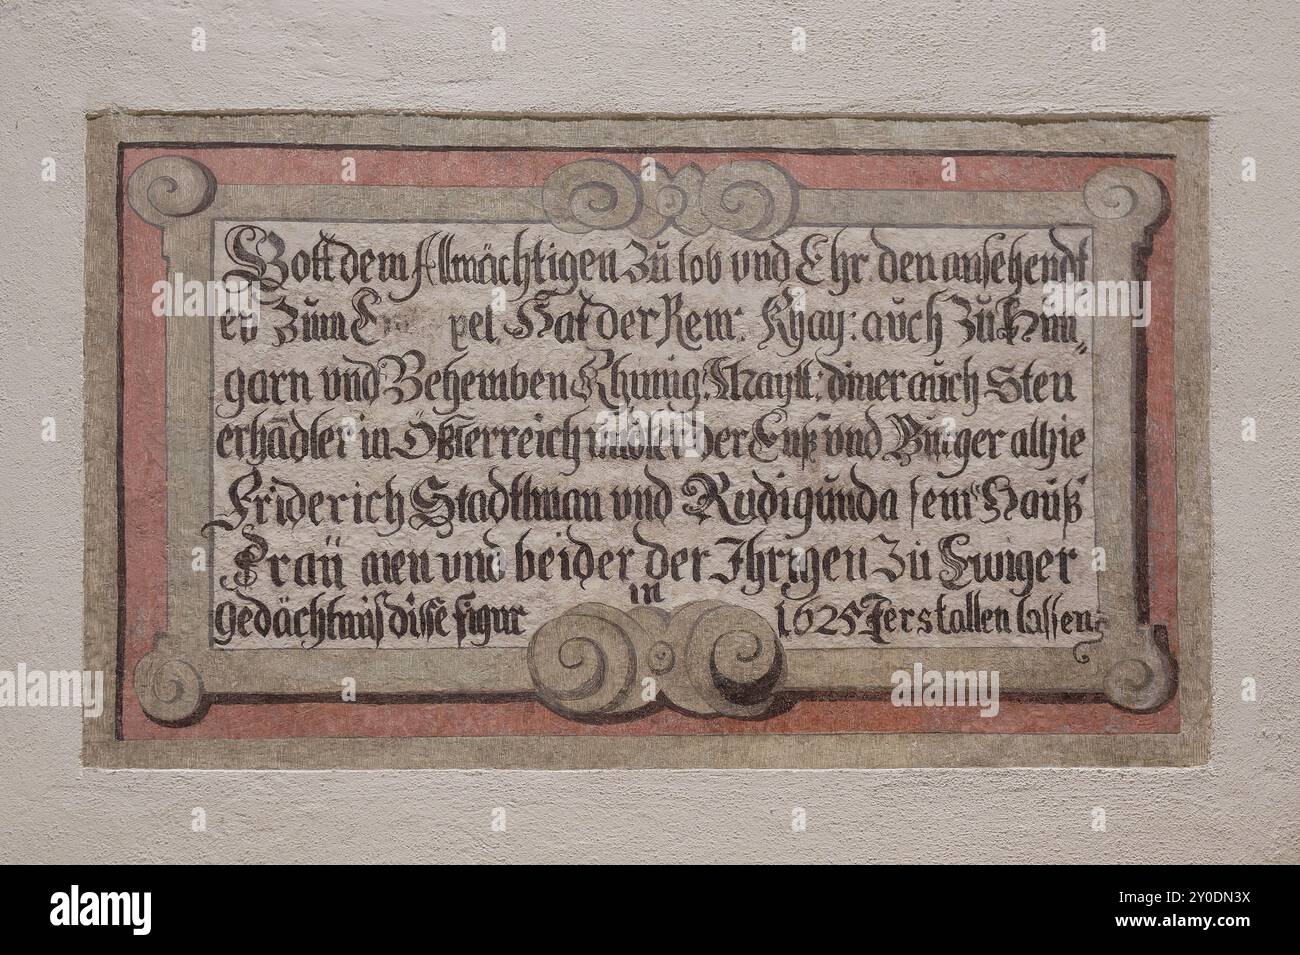 Gott dem Allmächtigen Zu lob vnd Ehr den ansehendt
en Zum pel Hat der Röm: Khay: auch Zu Hun,,
garn vnd Behemben Khünig: Maytt: diner auch Steu
erhādler in Ößterreich der Enß vnd Burger alhie
Friderich Stadtlman vnd Radigunda sein Hauß
Frau men vnd beider der Ihrigen Zu Ewiger
gedächtnuß disse figur in 1625 Jer stallen lassen
alamy
Image ID: 2Y0DN3X
www.alamy.com